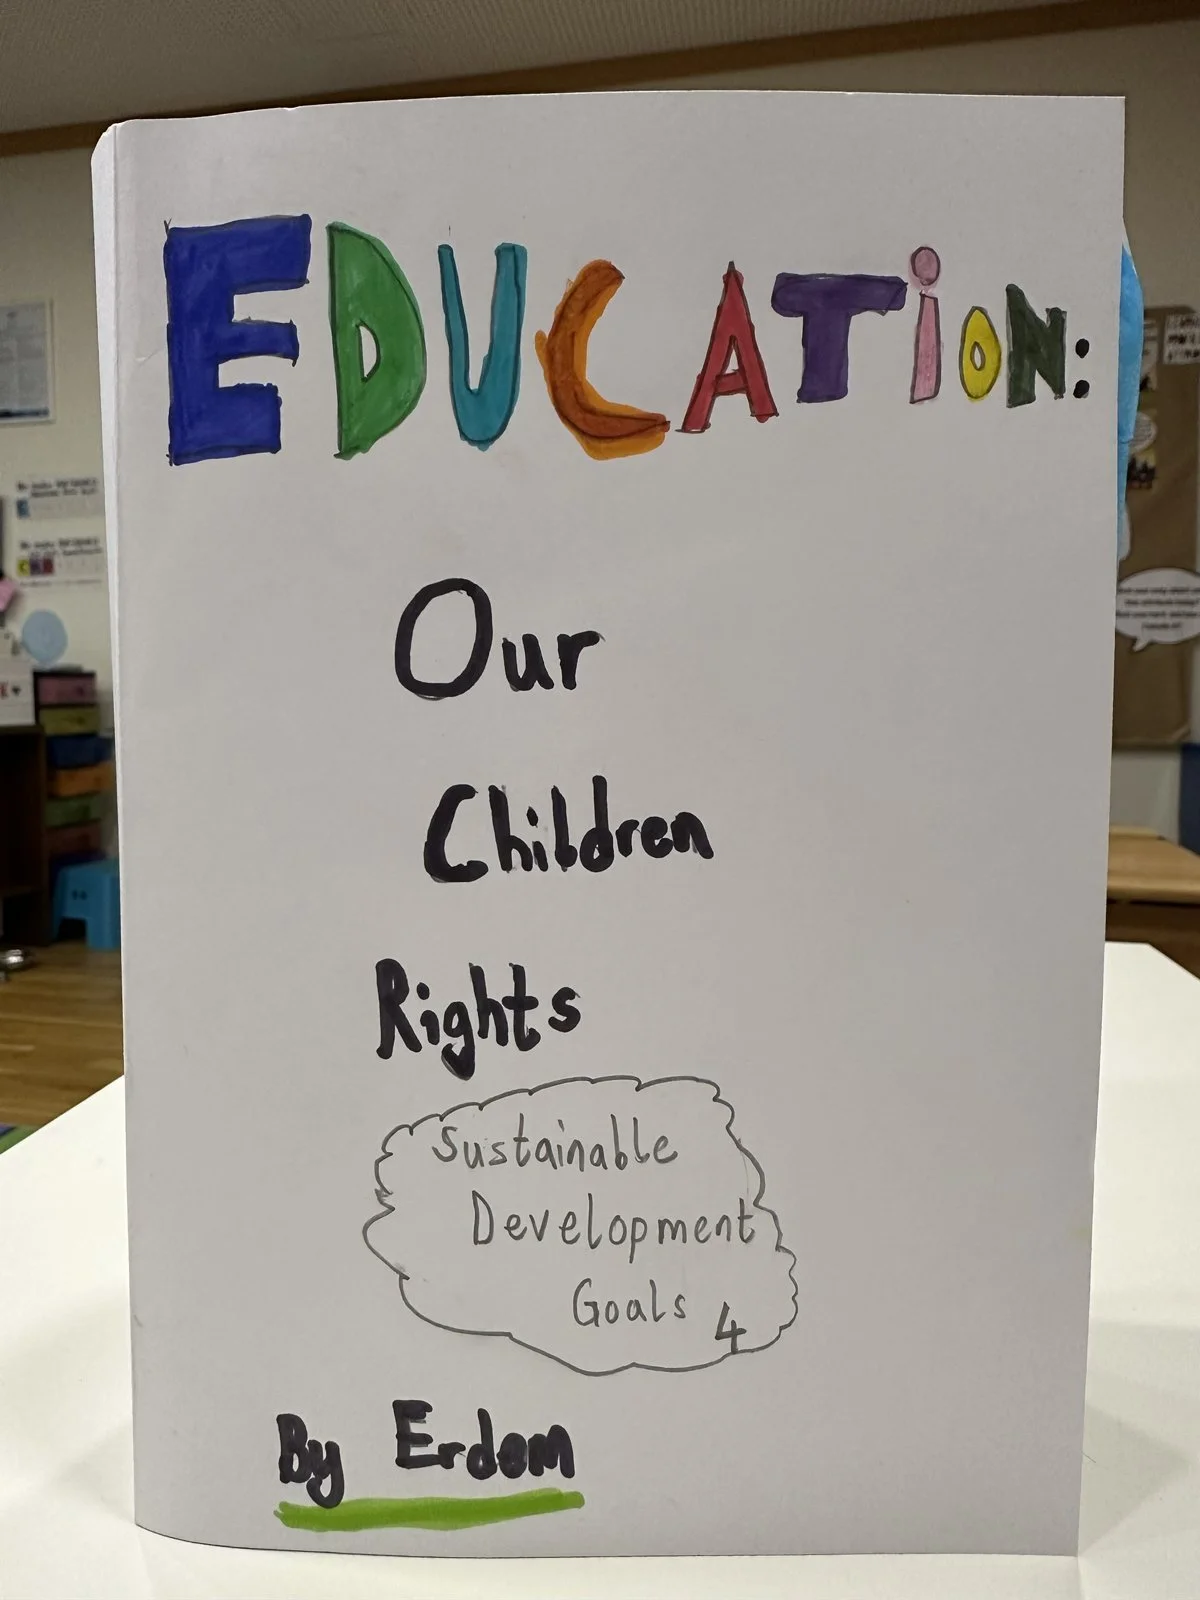 EDUCATiON:
Our
Children
Rights
Sustainable
Development
Goals 4
By Erdem